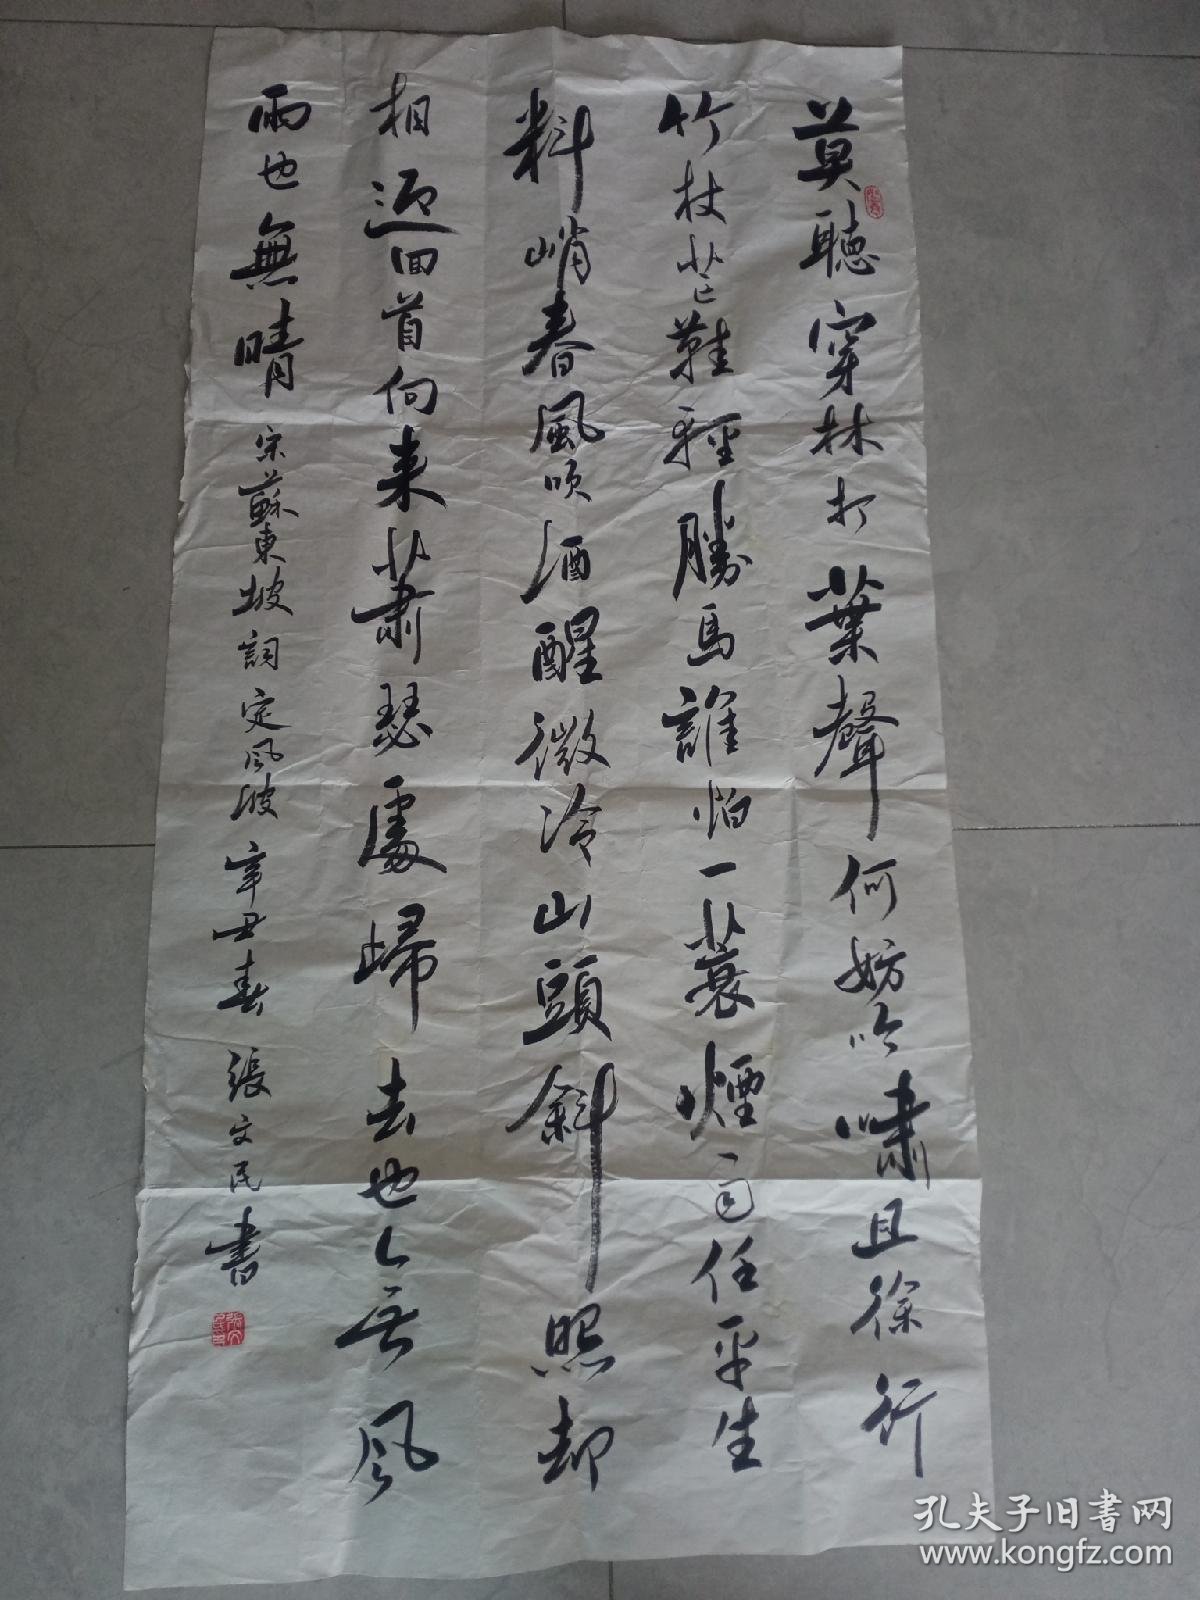 莫聽穿林打葉聲何妨吟嘯且徐行
竹杖芒鞋輕勝馬誰怕一蓑煙雨任平生
料峭春風吹酒醒微冷山頭斜照却
相迎回首向来蕭瑟處歸去也无风
雨也無晴 宋蘇東坡詞定风波 辛丑春 張文民書
孔夫子旧书网
www.kongfz.com